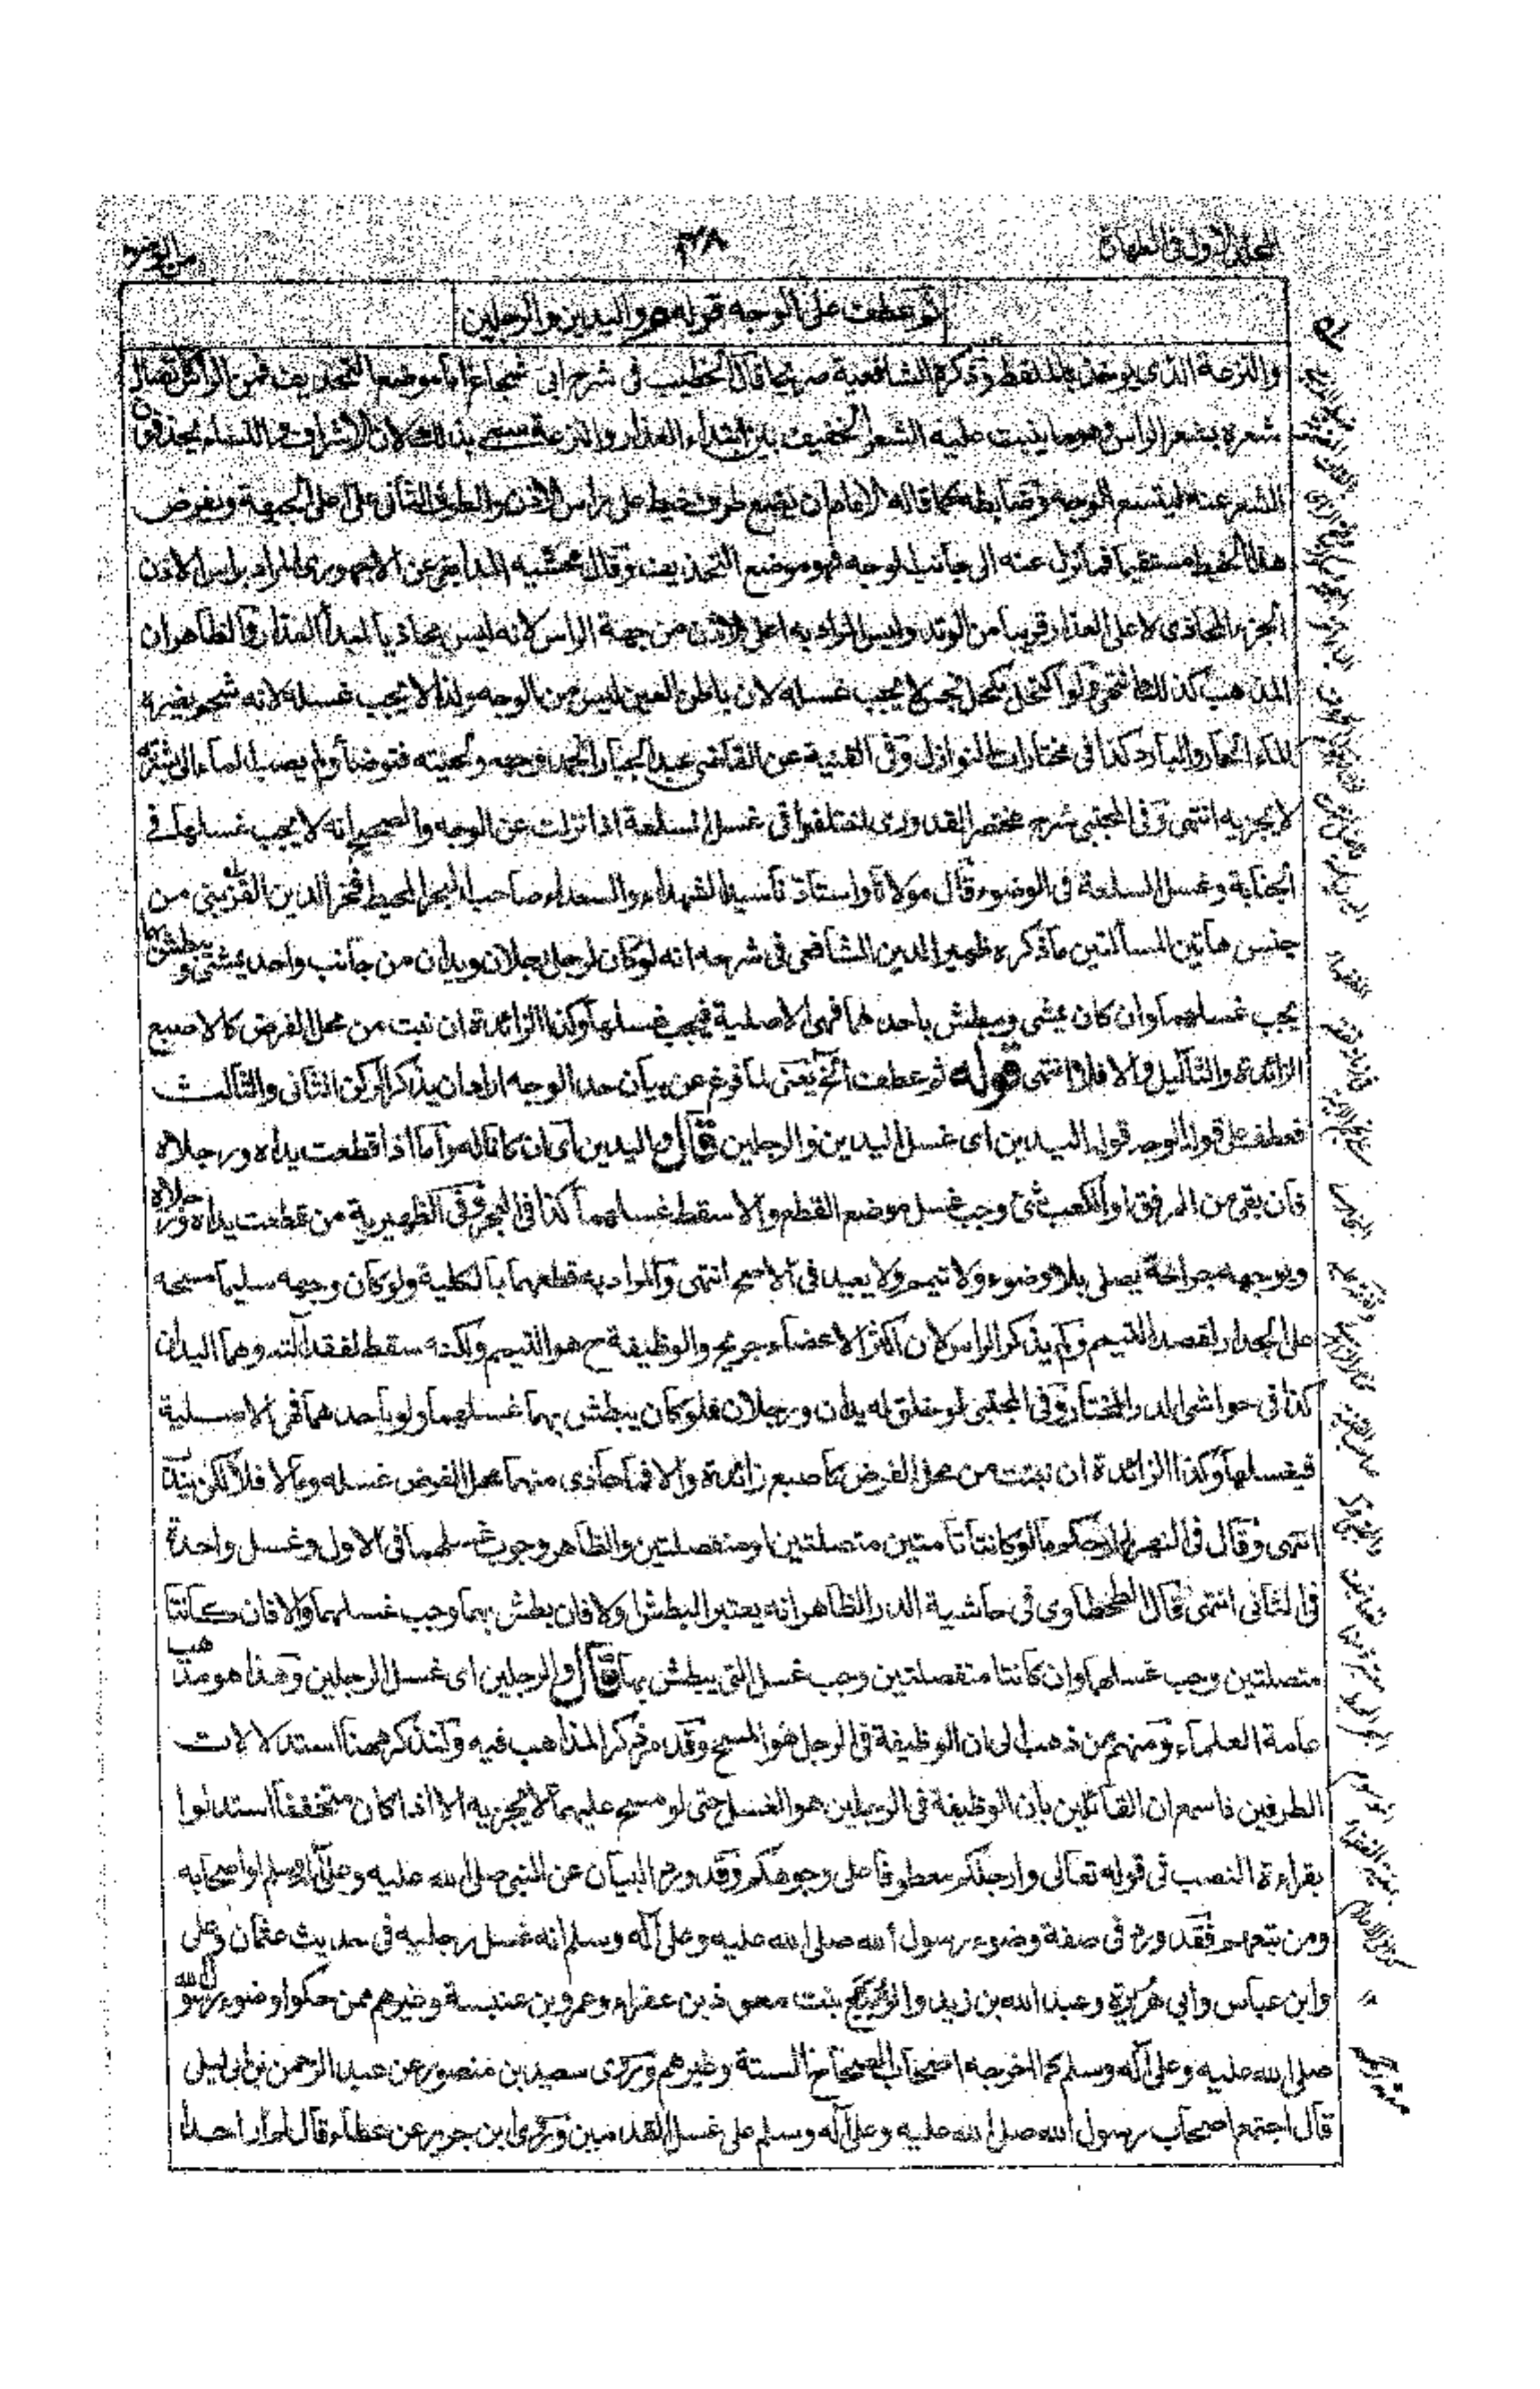 المجلد الاول فى الطهارة
٣٨
من الوضوء
ثم عطف على الوجه قوله واليدين والرجلين
والنزعة الذى يوخذ بالملقط وذكره الشافعية صريحا قال الخطيب فى شرح ابى شجاع اما موضع التحذيف فمن الراس لاتصال
شعره بشعر الراس وهو ما ينبت عليه الشعر الخفيف بين ابتداء العذار والنزعة سمى بذلك لان الاشراف والنساء يحذفون
الشعر عنه ليتسع الوجه وضابطه كما قاله الامام ان يضع طرف خيط على راس الاذن والطرف الثانى على اعلى الجبهة ويفرض
هذا الخيط مستقيما فما نزل عنه الى جانب الوجه فهو موضع التحذيف وقال محشيه المدابغى عن الاجهورى المراد براس الاذن
الجزء المحاذى لاعلى العذار قريبا من الوتد وليس المراد به اعلى الاذن من جهة الراس لانه ليس محاذيا لمبدأ العذار والظاهر ان
المذهب كذلك انتهى ولو اكتحل بكحل نجس لا يجب غسله لان باطن العين ليس من الوجه ولذا لا يجب غسله لانه شحم يضره
الماء الحار والبارد كذا فى مختارات النوازل وفى القنية عن القاضى عبد الجبار انجمد وجهه ولحيته فتوضأ ولم يصب الماء الى بشرته
لا يجزيه انتهى وفى المجتبى شرح مختصر القدورى اختلفوا فى غسل السلعة اذا نزلت عن الوجه والصحيح انه لا يجب غسلها فى
الجنابة وغسل السلعة فى الوضوء قال مولانا واستاذنا سيد الشهداء والسعداء صاحب البحر المحيط فخر الدين القزبنى من
جنس هاتين المسألتين ما ذكره ظهير الدين الشافعى فى شرحه انه لو كان لرجل رجلان ويدان من جانب واحد يمشى ويبطش بهما
يجب غسلهما وان كان يمشى ويبطش باحدهما فهى الاصلية فيجب غسلها وكذا الزائدة ان نبت من محل الفرض كالاصبع
الزائدة والثآليل والا فلا انتهى قوله ثم عطف الخ يعنى لما فرغ عن بيان حد الوجه اراد ان يذكر الركن الثانى والثالث
فعطف على قوله الوجه قوله اليدين اى غسل اليدين والرجلين قال واليدين اى ان كانا له واما اذا قطعت يداه ورجلاه
فان بقى من المرفق او الكعب شئ وجب غسل موضع القطع والا سقط غسلهما كذا فى البحر وفى الظهيرية من قطعت يداه ورجلاه
وبوجهه جراحة يصلى بلا وضوء ولا تيمم ولا يعيد فى الاصح انتهى والمراد به قطعهما بالكلية ولو كان وجهه سليما مسحه
على الجدار بقصد التيمم ولم يذكر الراس لان اكثر الاعضاء جريح والوظيفة ح هو التيمم ولكنه سقط لفقد آلته وهما اليدان
كذا فى حواشى الدر المختار وفى المجتبى لو خلق له يدان ورجلان فلو كان يبطش بهما غسلهما ولو باحدهما فهى الاصلية
فيغسلها وكذا الزائدة ان نبتت من محل الفرض كاصبع زائدة والا فما حاذى منهما محل الفرض غسله وما لا فلا لكن يندب
انتهى وقال فى النهر لم ار حكم ما لو كانتا تامتين متصلتين او منفصلتين والظاهر وجوب غسلهما فى الاول وغسل واحدة
فى الثانى انتهى قال الطحطاوى فى حاشية الدر الظاهر انه يعتبر البطش اولا فان بطش بهما وجب غسلهما والا فان كانتا
متصلتين وجب غسلهما وان كانتا منفصلتين وجب غسل التى يبطش بها قال والرجلين اى غسل الرجلين وهذا هو مذهب
عامة العلماء ومنهم من ذهب الى ان الوظيفة فى الرجل هو المسح وقد مر ذكر المذاهب فيه ولنذكر ههنا استدلالات
الطرفين فاسمع ان القائلين بان الوظيفة فى الرجلين هو الغسل حتى لو مسح عليهما لا يجزيه الا اذا كان متخففا استدلوا
بقراءة النصب فى قوله تعالى وارجلكم معطوفا على وجوهكم وقد ورد البيان عن النبى صلى الله عليه وعلى آله وسلم واصحابه
ومن تبعهم فقد ورد فى صفة وضوء رسول الله صلى الله عليه وعلى آله وسلم انه غسل رجليه فى حديث عثمان وعلى
وابن عباس وابى هريرة وعبد الله بن زيد والربيع بنت معوذ بن عفراء وعمرو بن عنبسة وغيرهم ممن حكوا وضوء رسول الله
صلى الله عليه وعلى آله وسلم كما اخرجه اصحاب الصحاح الستة وغيرهم وروى سعيد بن منصور عن عبد الرحمن بن ابى ليلى
قال اجتمع اصحاب رسول الله صلى الله عليه وعلى آله وسلم على غسل القدمين وروى ابن جرير عن عطاء قال لم ار احدا